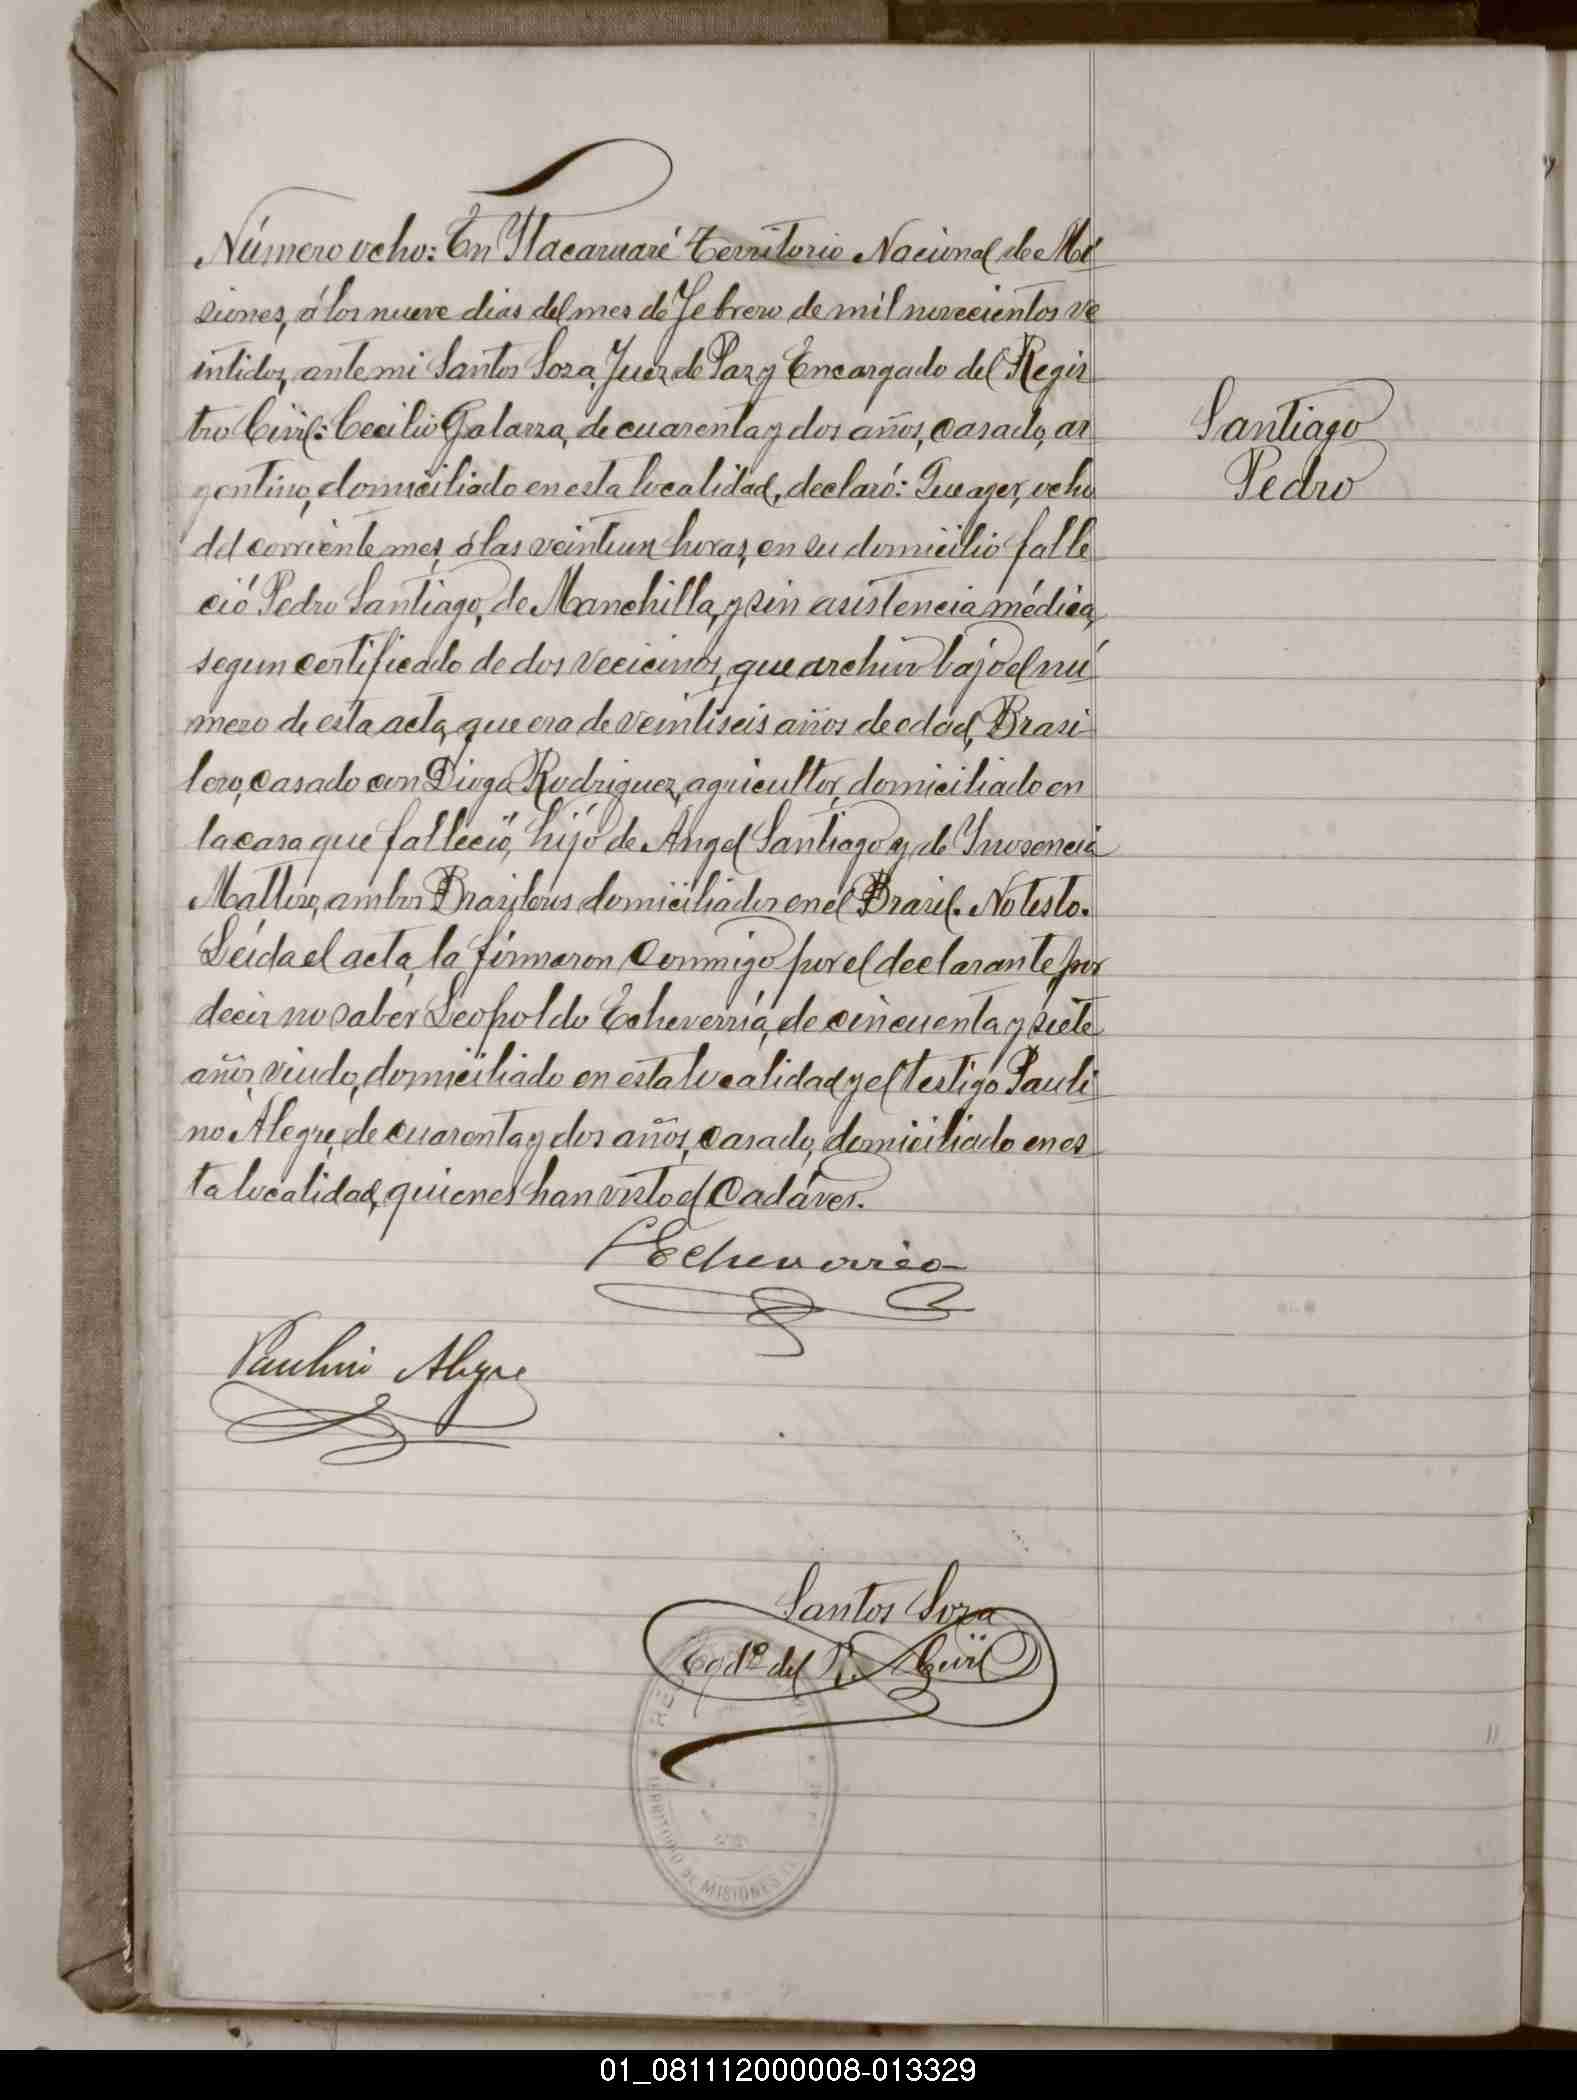 Número ocho: En Ytacaruaré Territorio Nacional de Mi
siones, á los nueve dias del mes de Febrero de mil novecientos ve
intidos, ante mi Santos Soza, Juez de Paz y Encargado del Regis
tro Civil: Cecilio Galarza, de cuarenta y dos años, casado, ar
gentino, domiciliado en esta localidad, declaró: Que ayer, ocho
del corriente mes, á las veintiun horas, en su domicilio falle
ció Pedro Santiago, de Manchilla, y sin asistencia médica,
segun certificado de dos vecicinos, que archivo bajo el nú
mero de esta acta, que era de veintiseis años de edad, Brasi
lero, casado con Dioga Rodriguez, agricultor, domiciliado en
la casa que falleció, hijo de Angel Santiago y de Ynosencia
Mattos, ambos Brasileros domiciliados en el Brasil. No testo.
Leída el acta, la firmaron conmigo por el declarante, por
decir no saber Leopoldo Echeverría, de cincuenta y siete
años, viudo, domiciliado en esta localidad y el testigo Pauli
no Alegre, de cuarenta y dos años, casado, domiciliado en es
ta localidad, quienes han visto el cadáver.
Santiago
Pedro
LEcheverria
Paulino Alegre
Santos Soza
Egdo del R. Civil
TERRITORIO DE MISIONES
01_081112000008-013329